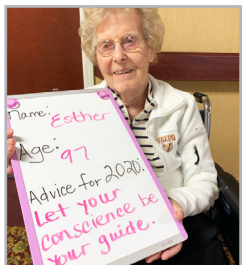 Name: Esther
Age: 97
Advice for 2020:
Let your
conscience be
your guide.
VALPO